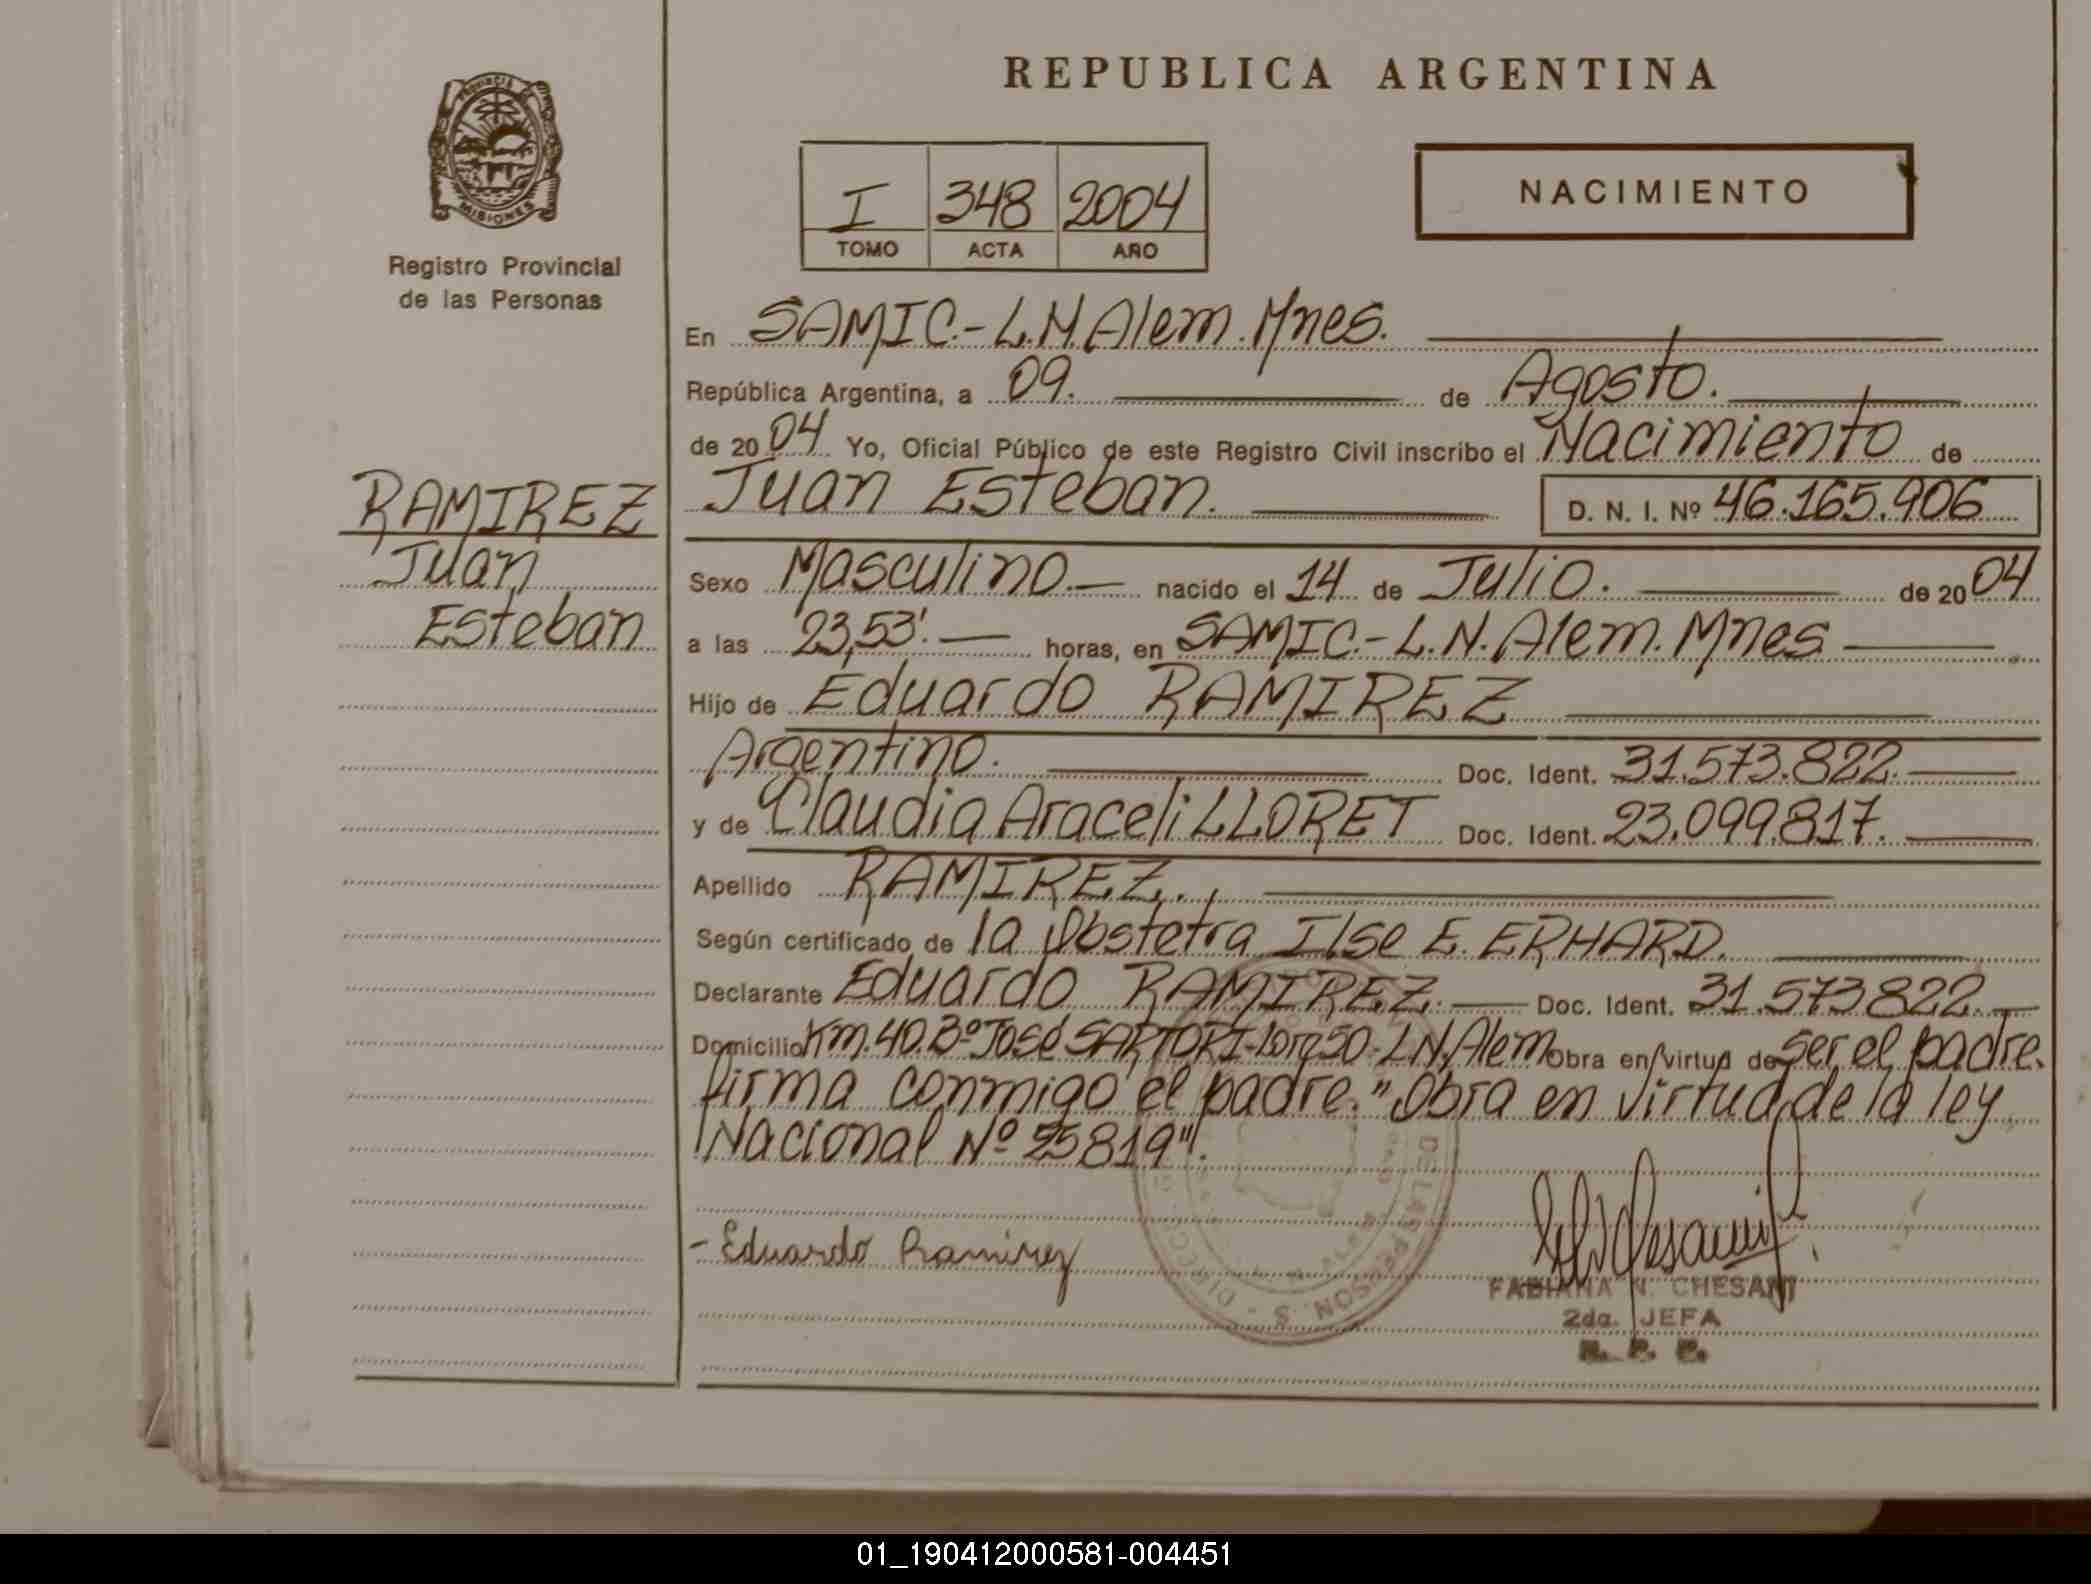 REPUBLICA ARGENTINA
PROVINCIA DE
MISIONES
Registro Provincial
de las Personas
I 348 2004
TOMO ACTA AÑO
NACIMIENTO
En SAMIC.- L.N. Alem. Mnes.
República Argentina, a 09. de Agosto.
de 2004 Yo, Oficial Público de este Registro Civil inscribo el Nacimiento de
Juan Esteban. D. N. I. Nº 46.165.906
RAMIREZ
Juan
Esteban
Sexo Masculino.- nacido el 14 de Julio. de 2004
a las 23,53'. horas, en SAMIC.- L.N. Alem. Mnes
Hijo de Eduardo RAMIREZ
Argentino. Doc. Ident. 31.573.822.
y de Claudia Araceli LLORET Doc. Ident. 23.099.817.
Apellido RAMIREZ.
Según certificado de la Obstetra Ilse E. ERHARD.
Declarante Eduardo RAMIREZ. Doc. Ident. 31.573822.
Domicilio Km.40.Bº José SARTORI-Lote 50-L.N.Alem Obra en virtud de ser el padre.
firma conmigo el padre. "Obra en virtud de la ley
Nacional Nº 25819".
- Eduardo Ramirez
FABIANA N. CHESANI
2da. JEFA
R. P. P.
01_190412000581-004451